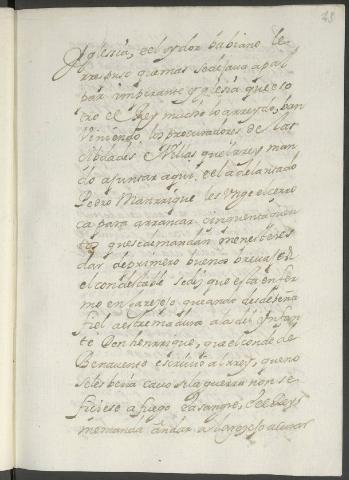 Yglesia, e el oydor babiano le
rrespuso que mas se deseava apal
par imperante yglesia que eso
rio el Rey mucho lo arreydo, ban
viniendo los procuradores de las
cibdades e Villas que el rrey man
do ajuntar aqui, e el adelantado
Pedro Manrrique les urge el cerro
ca para arrancar cinquenta quen
tos que se demandan menesteres
dar, de primero buenos
el condestable se dis que esta enfer
mo en quando desdeseña
fiel aestremadura a la dis Ynfan
te Don henrrique, que el conde de
Benavento escrivio al rrey, que no
seles beria cavo si la guerra non se
ficiese a fuego e a sangre, e el Rey
me manda andar a